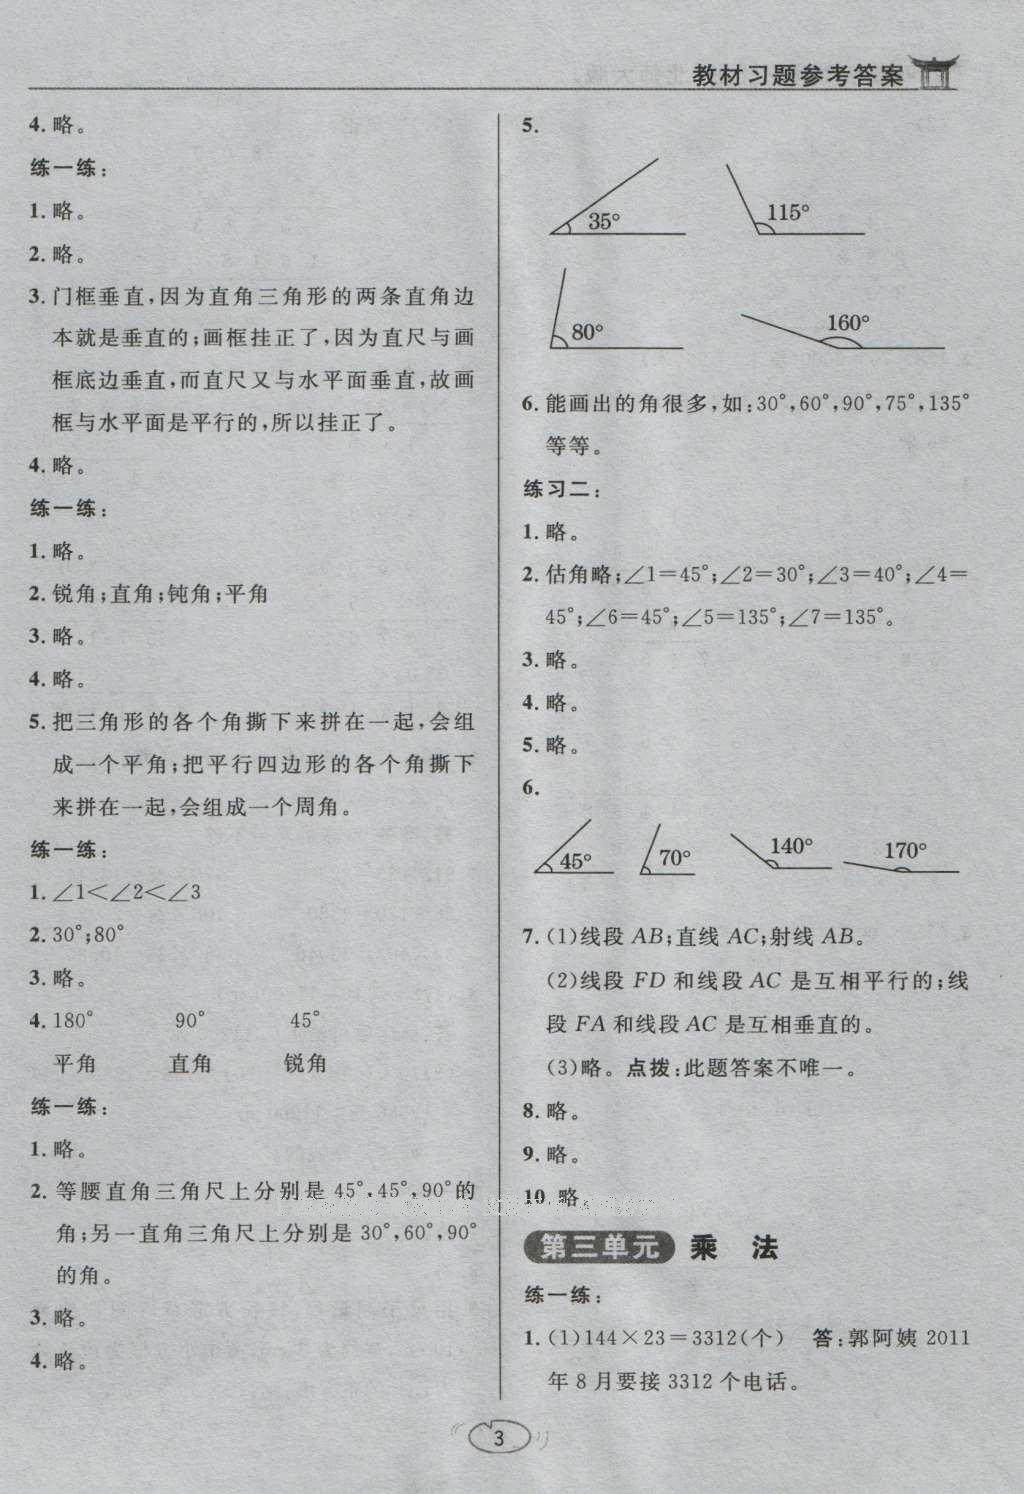 教材习题参考答案
4. 略。
练一练:
1. 略。
2. 略。
3. 门框垂直,因为直角三角形的两条直角边
本就是垂直的;画框挂正了,因为直尺与画
框底边垂直,而直尺又与水平面垂直,故画
框与水平面是平行的,所以挂正了。
4. 略。
练一练:
1. 略。
2. 锐角;直角;钝角;平角
3. 略。
4. 略。
5. 把三角形的各个角撕下来拼在一起,会组
成一个平角;把平行四边形的各个角撕下
来拼在一起,会组成一个周角。
练一练:
1. ∠1<∠2<∠3
2. 30°;80°
3. 略。
4. 180° 90° 45°
平角 直角 锐角
练一练:
1. 略。
2. 等腰直角三角尺上分别是 45°,45°,90°的
角;另一直角三角尺上分别是 30°,60°,90°
的角。
3. 略。
4. 略。
5.
35° 115°
80° 160°
6. 能画出的角很多,如:30°,60°,90°,75°,135°
等等。
练习二:
1. 略。
2. 估角略;∠1=45°;∠2=30°;∠3=40°;∠4=
45°;∠6=45°;∠5=135°;∠7=135°。
3. 略。
4. 略。
5. 略。
6.
45° 70° 140° 170°
7. (1)线段 AB;直线 AC;射线 AB。
(2)线段 FD 和线段 AC 是互相平行的;线
段 FA 和线段 AC 是互相垂直的。
(3)略。点拨:此题答案不唯一。
8. 略。
9. 略。
10. 略
第三单元 乘 法
练一练:
1. (1)144×23=3312(个) 答:郭阿姨 2011
年 8 月要接 3312 个电话。
3